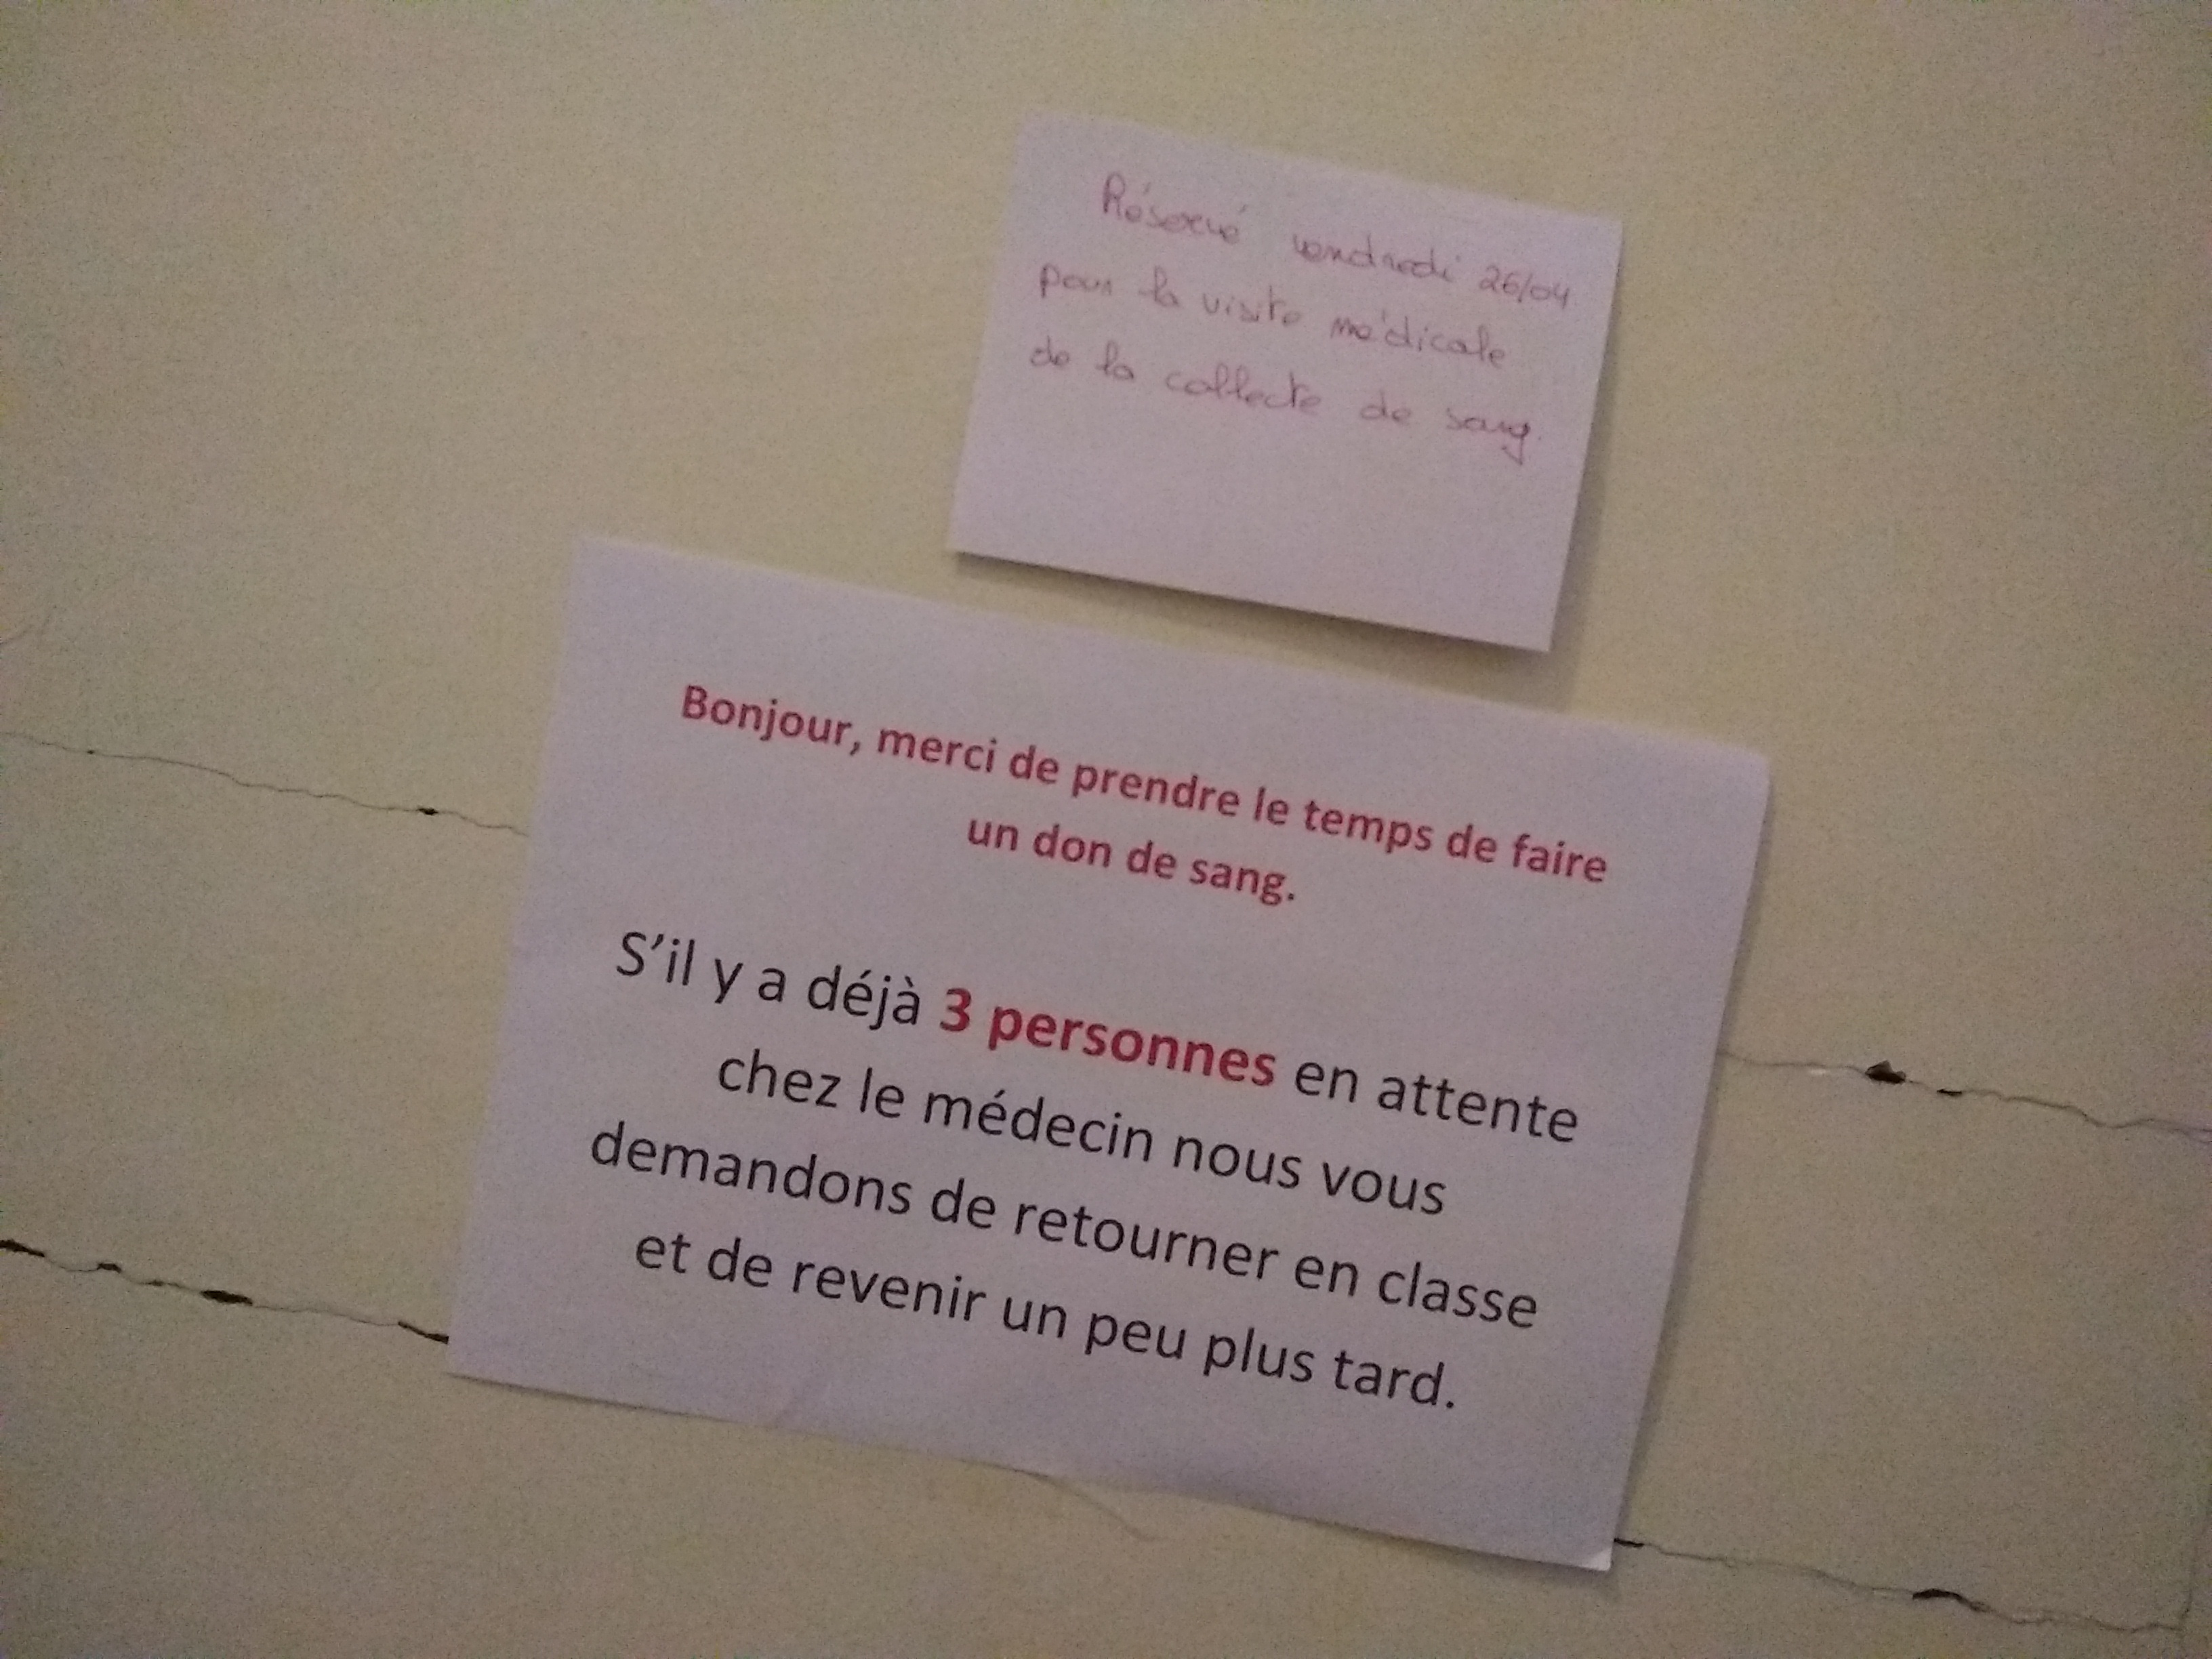 Réservé vendredi 26/04
pour la visite médicale
de la collecte de sang.
Bonjour, merci de prendre le temps de faire
un don de sang.
S'il y a déjà 3 personnes en attente
chez le médecin nous vous
demandons de retourner en classe
et de revenir un peu plus tard.